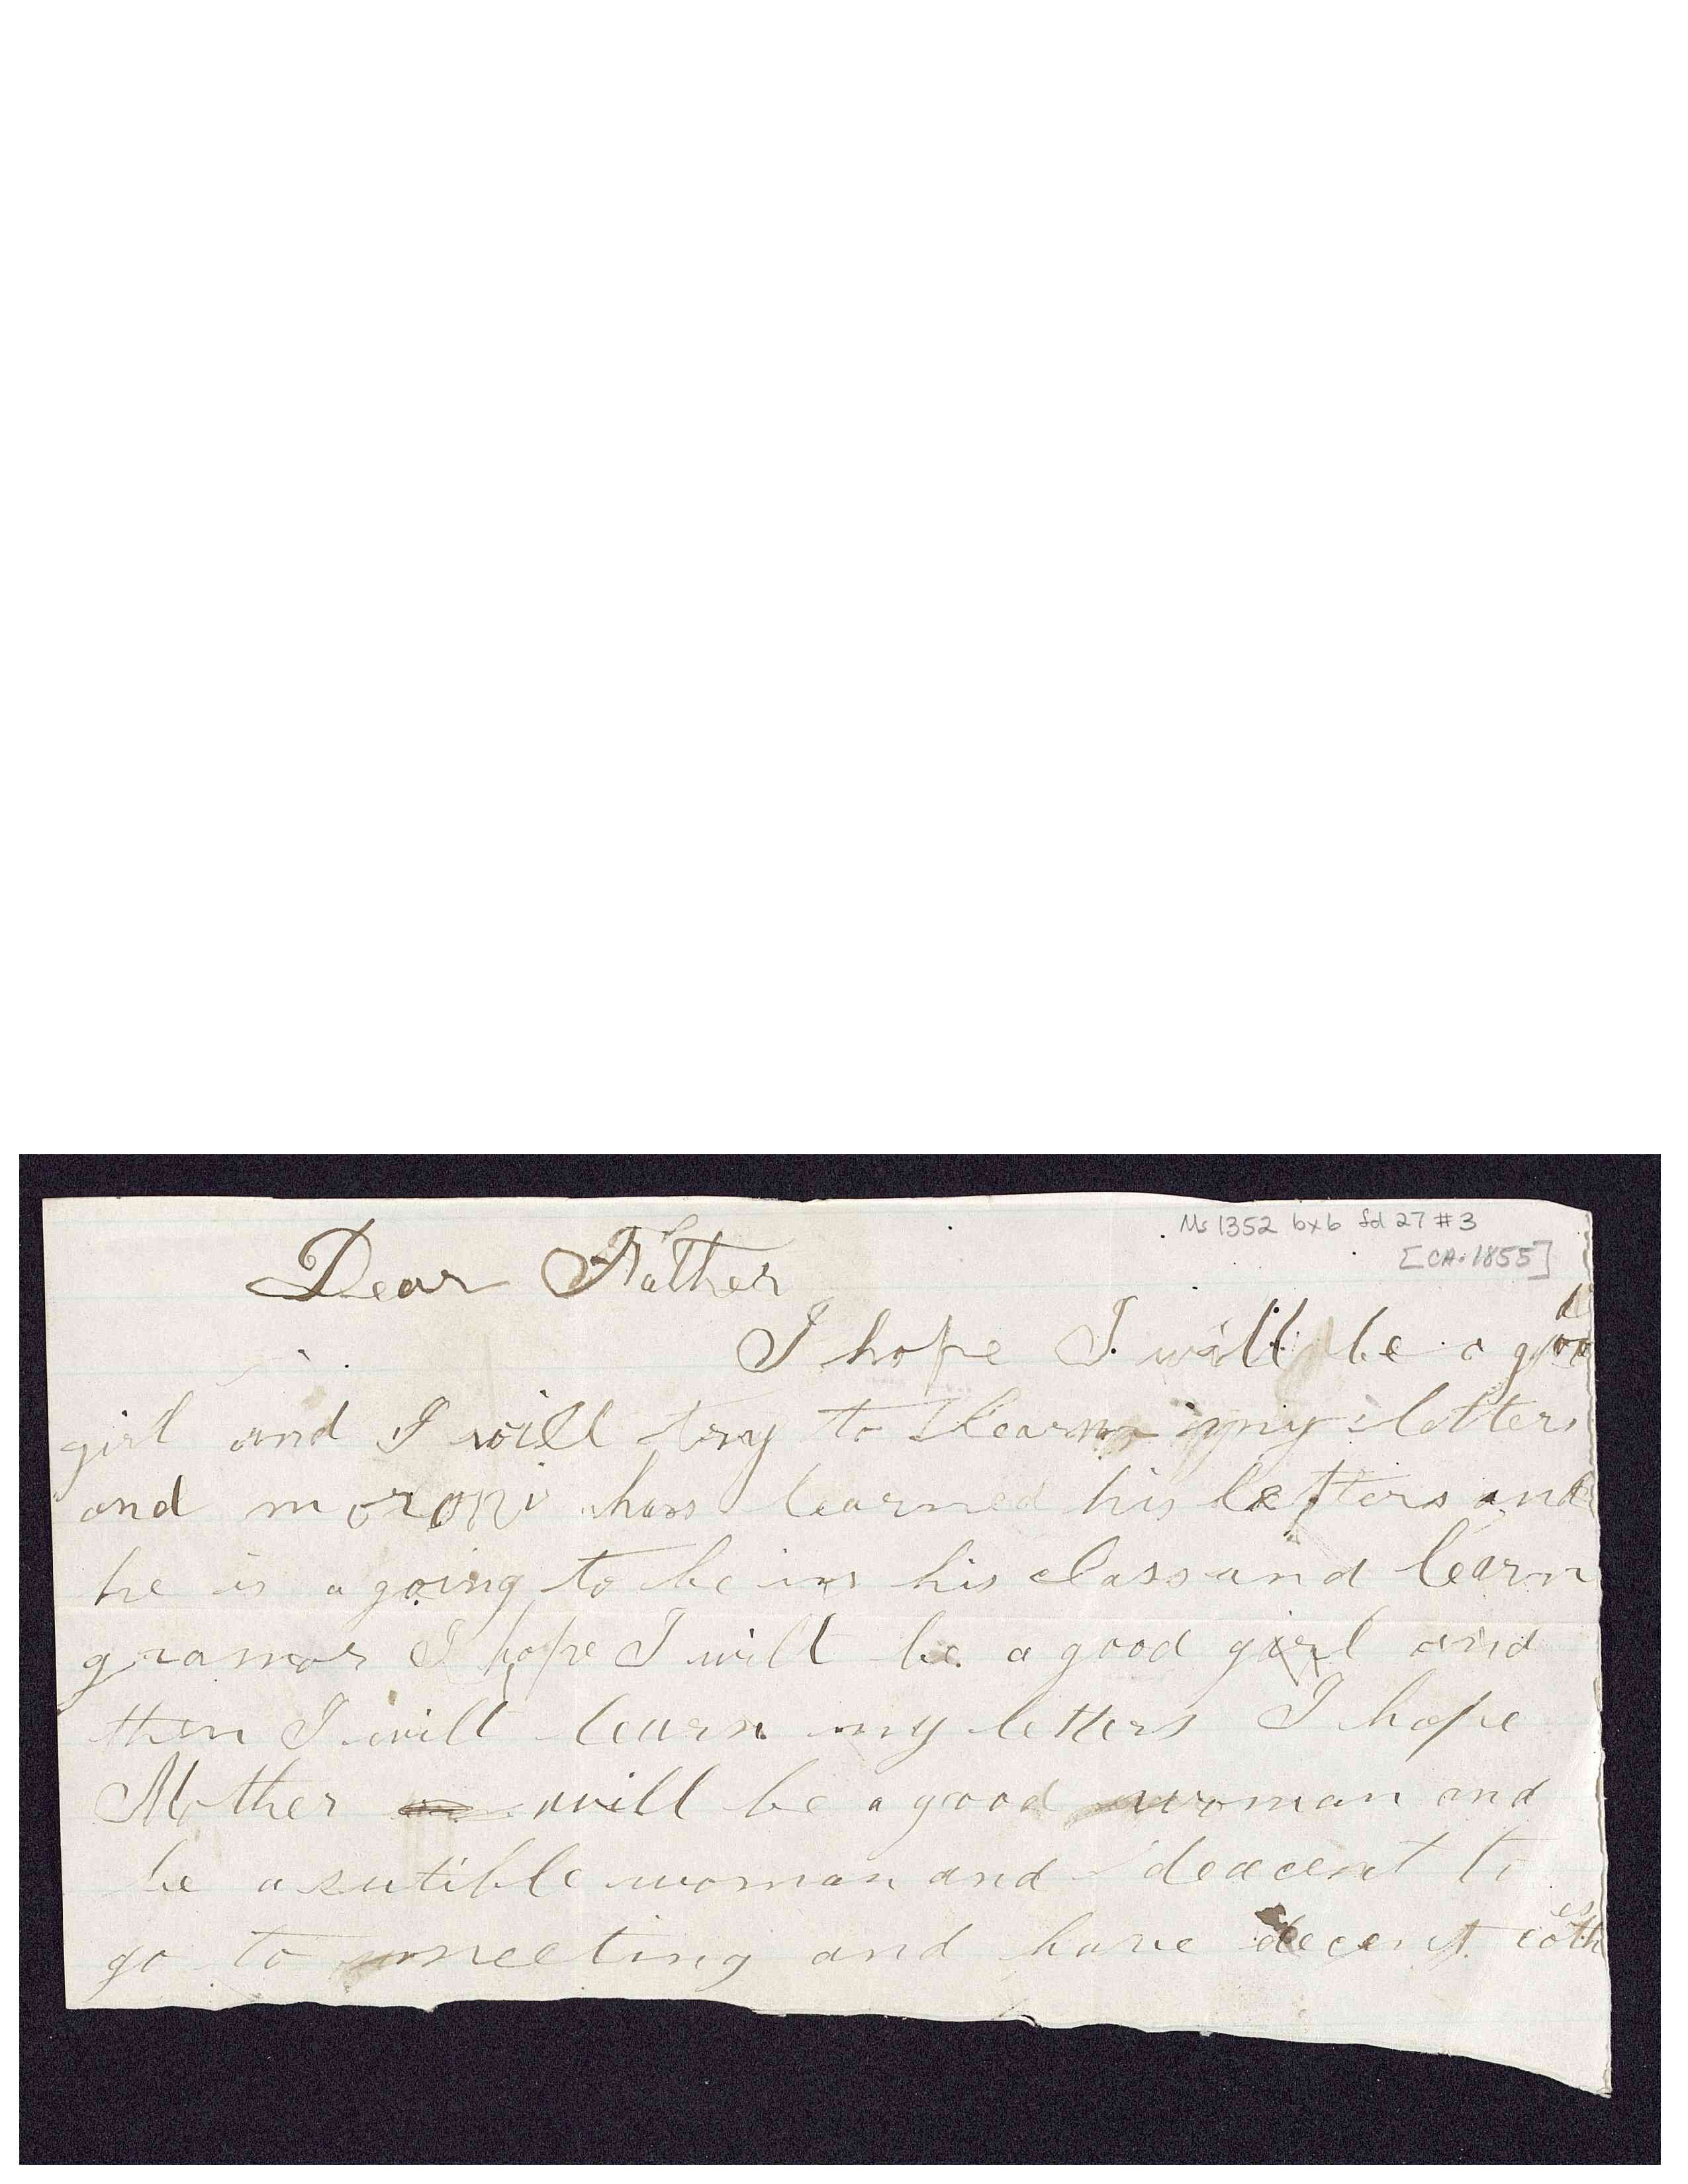 Ms 1352 bx6 fd 27 #3
[CA. 1855]
Dear Father
I hope I will be a good
girl and I will try to learn my letters
and moroni has learned his letters and
he is a going to be in his class and learn
gramar I hope I will be a good girl and
then I will learn my letters I hope
Mother will be a good woman and
be a sutible woman and deacent to
go to meeting and have decent cothes